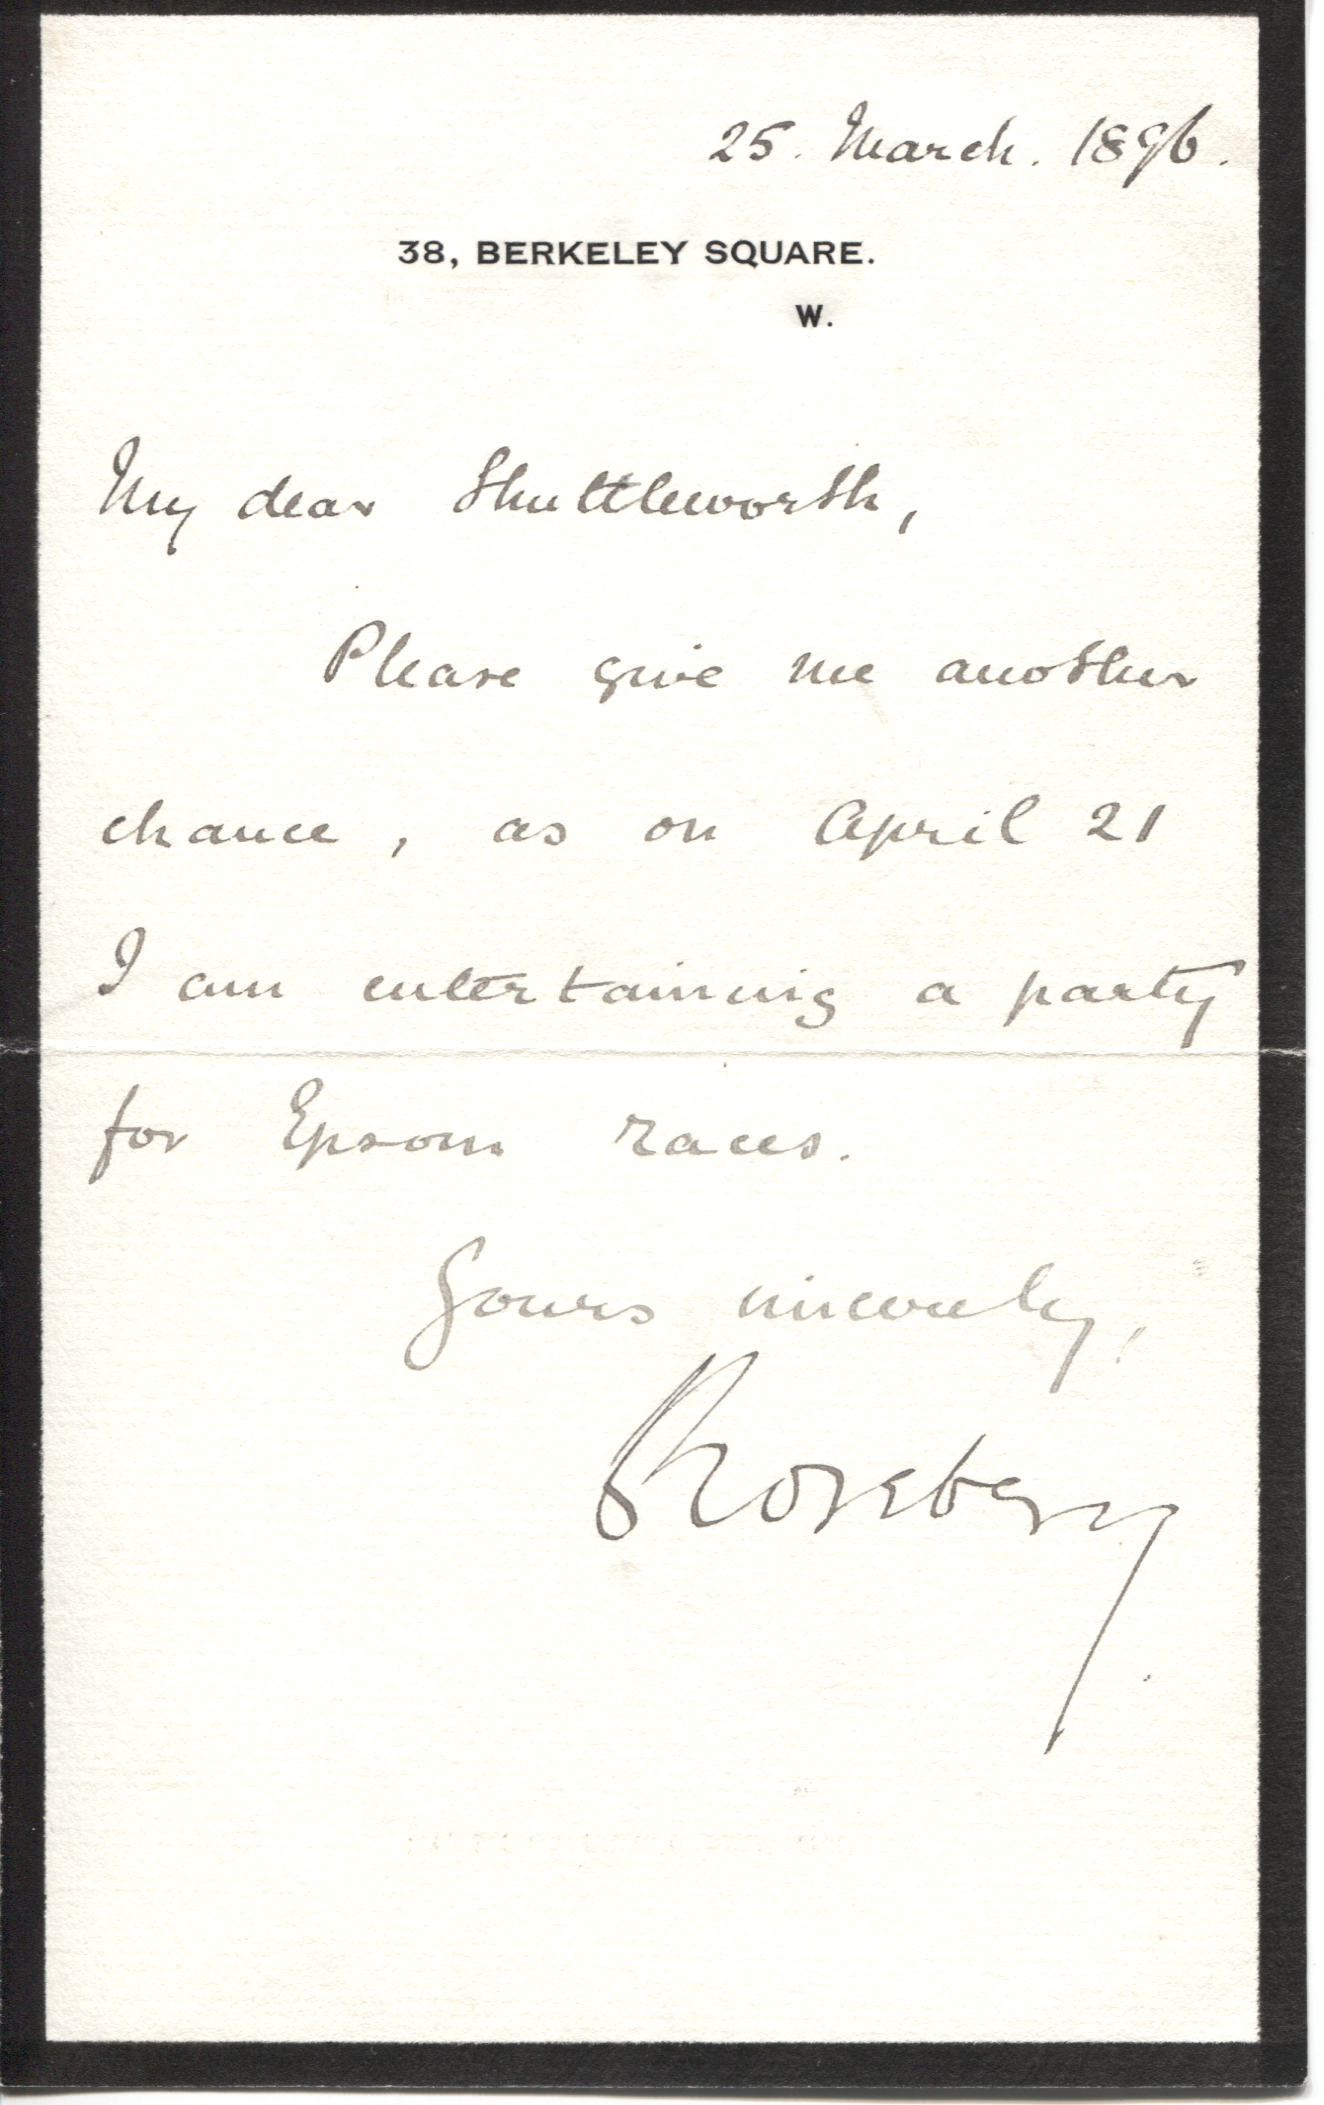 25. March. 1896.
38, BERKELEY SQUARE.
W.
My dear Shuttleworth,
Please give me another
chance, as on April 21
I am entertaining a party
for Epsom races.
Yours sincerely,
Rosebery